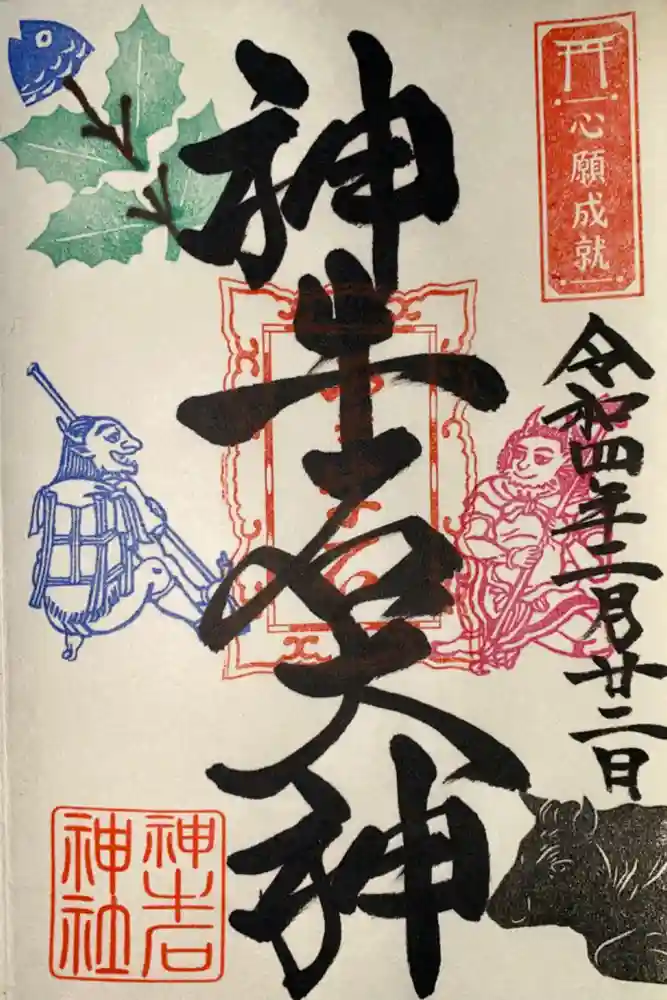 心願成就
令和四年二月廿二日
神牛石大神
神牛石
神社